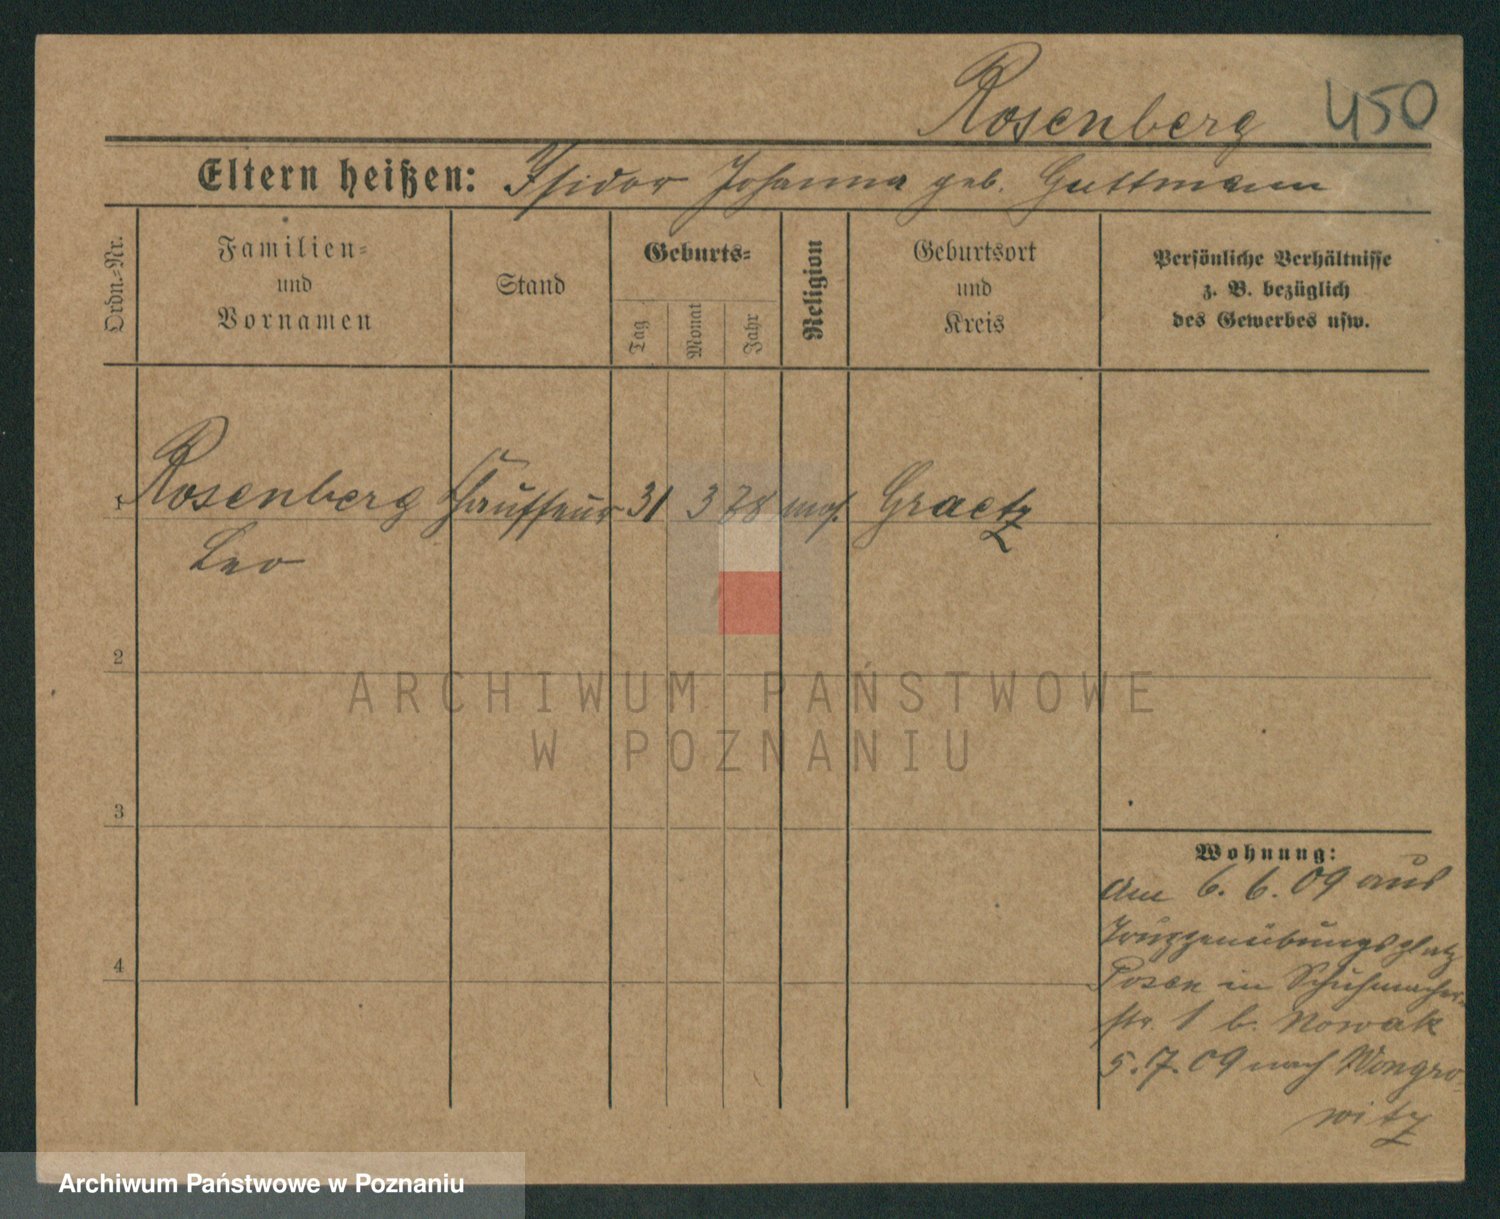 Rosenberg 450
Eltern heißen: Isidor Johanna geb. Guttmann
Ordn.-Nr.
Familien-
und
Vornamen
Stand
Geburts-
Tag
Monat
Jahr
Religion
Geburtsort
und
Kreis
Persönliche Verhältnisse
z. B. bezüglich
des Gewerbes usw.
1 Rosenberg Chauffeur 31 3 78 mos. Graetz
Leo
2
3
4
Wohnung:
Am 6. 6. 09 aus
Truppenübungsplatz
Posen in Schuhmacher-
str. 1 b. Nowak
5. 7. 09 nach Wongro-
witz
ARCHIWUM PAŃSTWOWE
W POZNANIU
Archiwum Państwowe w Poznaniu